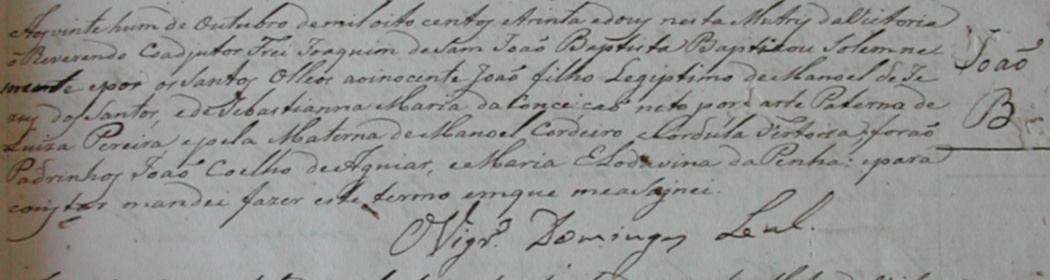 Aos vinte hum de Outubro de mil oito centos e trinta e dous nesta Matriz da Victoria
o Reverendo Coadjutor Frei Joaquim de Sam João Baptista Baptizou Solemne
mente e poz os Santos Olleos ao inocente João filho Legiptimo de Manoel de Je
zus dos Santos, e de Sebastianna Maria da Conceicaõ neto por parte Paterna de
Luiza Pereira e pela Materna de Manoel Cordeiro, e Cordula foraõ
Padrinhos João Coelho de Aguiar, e Maria Elodovina da Penha: e para
constar mandei fazer este termo em que me assignei.
O Vigrº. Domingos Leal.
João
B